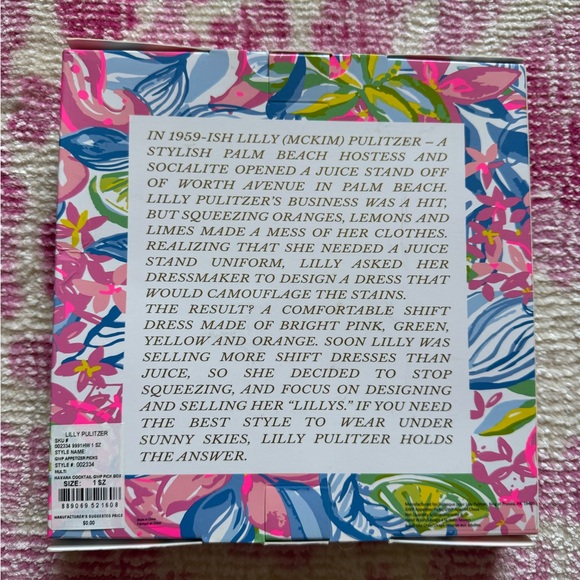 IN 1959-ISH LILLY (MCKIM) PULITZER – A
STYLISH PALM BEACH HOSTESS AND
SOCIALITE OPENED A JUICE STAND OFF
OF WORTH AVENUE IN PALM BEACH.
LILLY PULITZER'S BUSINESS WAS A HIT,
BUT SQUEEZING ORANGES, LEMONS AND
LIMES MADE A MESS OF HER CLOTHES.
REALIZING THAT SHE NEEDED A JUICE
STAND UNIFORM, LILLY ASKED HER
DRESSMAKER TO DESIGN A DRESS THAT
WOULD CAMOUFLAGE THE STAINS.
THE RESULT? A COMFORTABLE SHIFT
DRESS MADE OF BRIGHT PINK, GREEN,
YELLOW AND ORANGE. SOON LILLY WAS
SELLING MORE SHIFT DRESSES THAN
JUICE, SO SHE DECIDED TO STOP
SQUEEZING, AND FOCUS ON DESIGNING
AND SELLING HER "LILLYS." IF YOU NEED
THE BEST STYLE TO WEAR UNDER
SUNNY SKIES, LILLY PULITZER HOLDS
THE ANSWER.
LILLY PULITZER
SKU #
002334 9991HW 1 SZ
STYLE NAME:
GWP APPETIZER PICKS
STYLE #: 002334
MULTI
HAVANA COCKTAIL GWP PICK BOX
SIZE: 1 SZ
889069 521608
MANUFACTURER'S SUGGESTED PRICE
$0.00